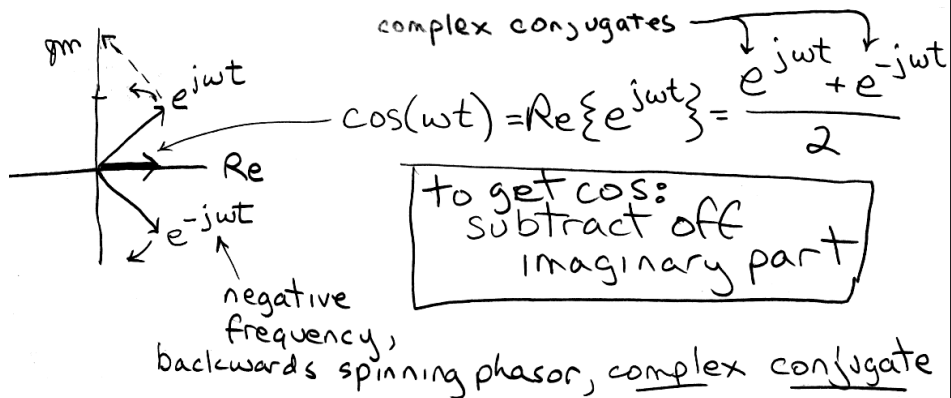 complex conjugates
Im
e^{jωt}
cos(ωt) = Re{e^{jωt}} = \frac{e^{jωt} + e^{-jωt}}{2}
Re
to get cos:
subtract off
imaginary part
e^{-jωt}
negative
frequency,
backwards spinning phasor, complex conjugate